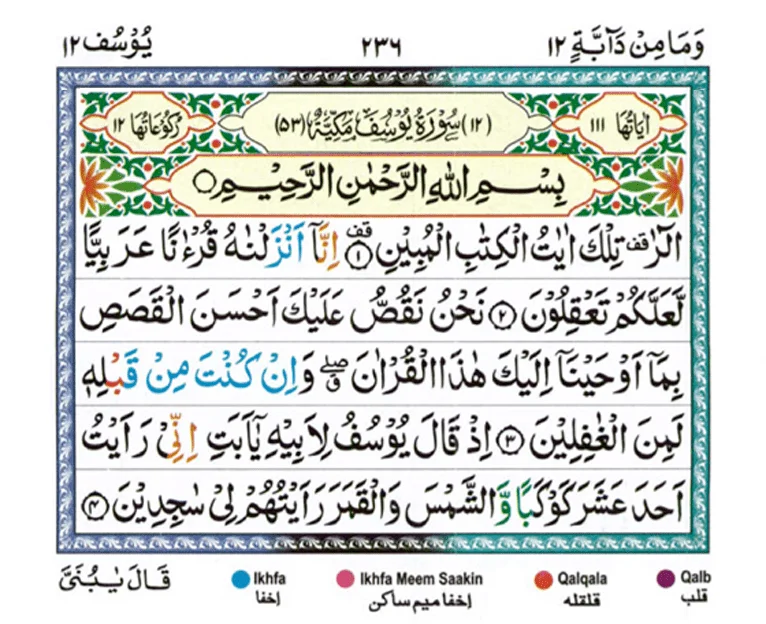 وَمَا مِنْ دَآبَّةٍ ١٢ ٢٣٦ يُوْسُف ١٢
اٰيَاتُهَا ١١١ (١٢) سُوْرَةُ يُوْسُفَ مَكِّيَّةٌ (٥٣) رُكُوْعَاتُهَا ١٢
بِسْمِ اللهِ الرَّحْمٰنِ الرَّحِيْمِ
الٓرٰ قف تِلْكَ اٰيٰتُ الْكِتٰبِ الْمُبِيْنِ ۟قف ١ اِنَّاۤ اَنْزَلْنٰهُ قُرْءٰنًا عَرَبِيًّا
لَّعَلَّكُمْ تَعْقِلُوْنَ ٢ نَحْنُ نَقُصُّ عَلَيْكَ اَحْسَنَ الْقَصَصِ
بِمَاۤ اَوْحَيْنَاۤ اِلَيْكَ هٰذَا الْقُرْاٰنَ ۖق وَاِنْ كُنْتَ مِنْ قَبْلِهٖ
لَمِنَ الْغٰفِلِيْنَ ٣ اِذْ قَالَ يُوْسُفُ لِاَبِيْهِ يٰۤاَبَتِ اِنِّيْ رَاَيْتُ
اَحَدَ عَشَرَ كَوْكَبًا وَّالشَّمْسَ وَالْقَمَرَ رَاَيْتُهُمْ لِيْ سٰجِدِيْنَ ٤
قَالَ يٰبُنَيَّ
Ikhfa
إخفا
Ikhfa Meem Saakin
إخفا ميم ساكن
Qalqala
قلقله
Qalb
قلب